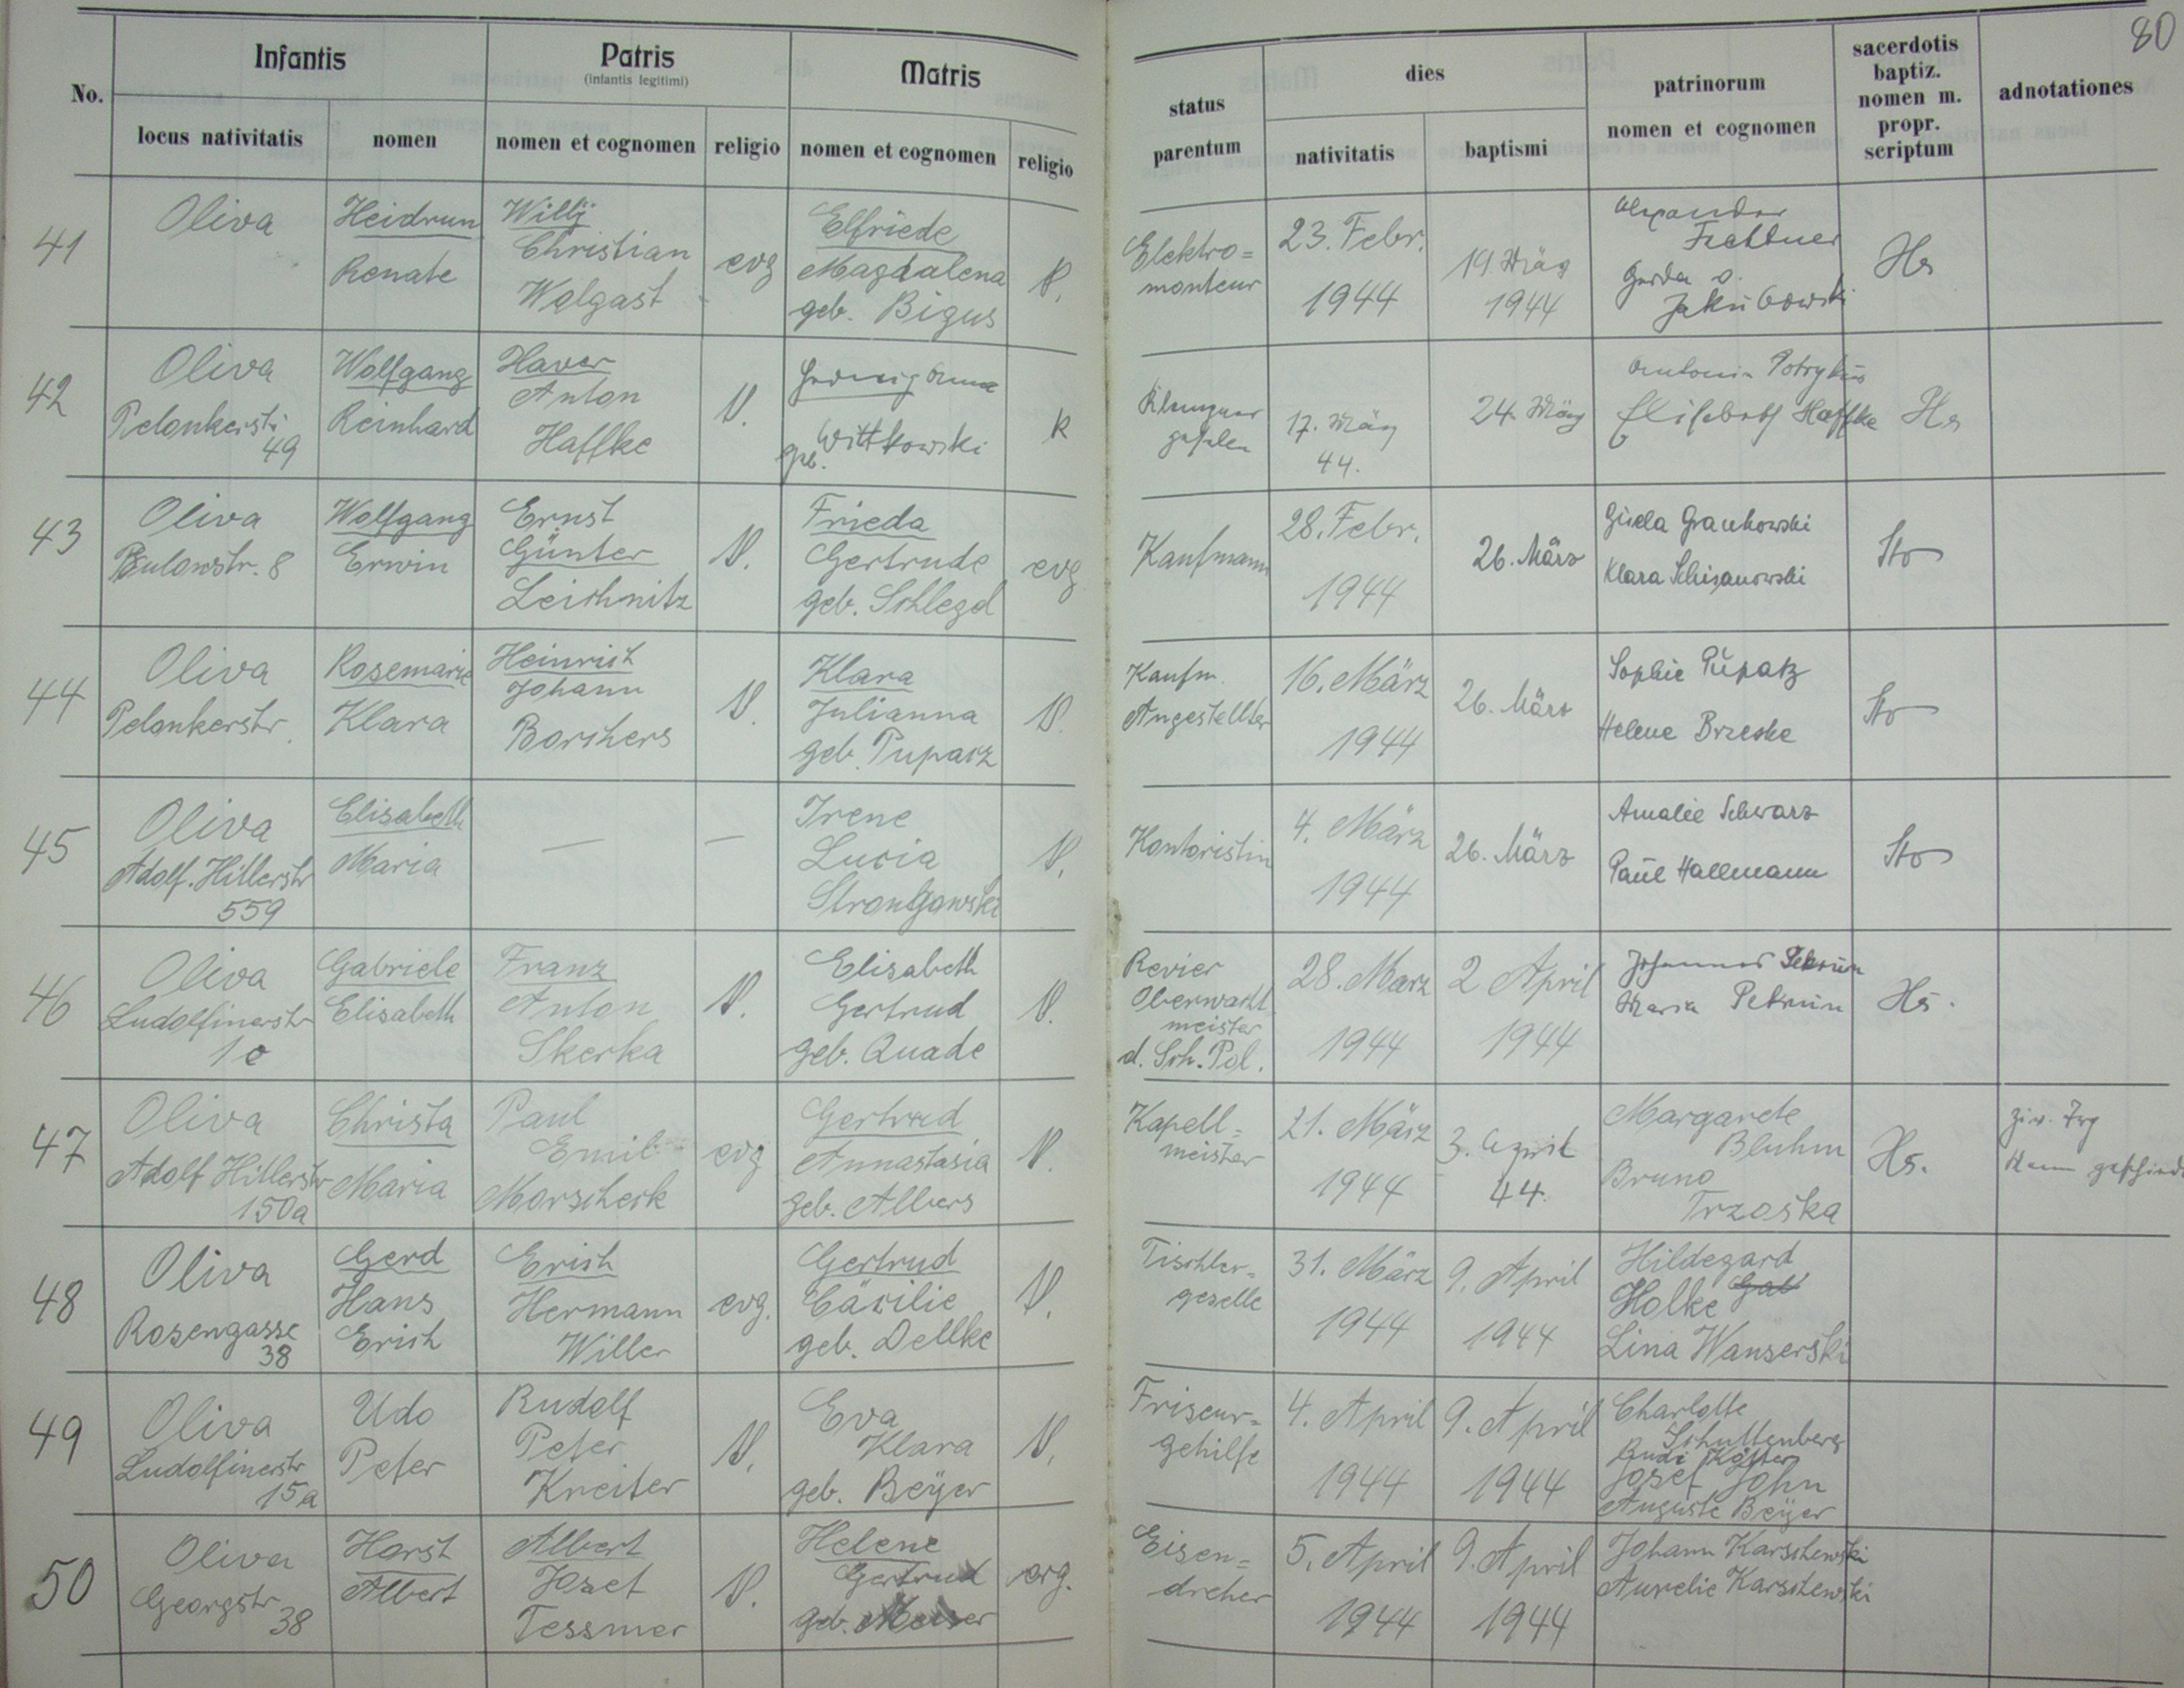 80
No.
Infantis
Patris
(infantis legitimi)
Matris
status parentum
dies
patrinorum
nomen et cognomen
sacerdotis
baptiz.
nomen m.
propr.
scriptum
adnotationes
locus nativitatis
nomen
nomen et cognomen
religio
nomen et cognomen
religio
nativitatis
baptismi
41
Oliva
Heidrun
Renate
Willy
Christian
Wolgast
evg
Elfriede
Magdalena
geb. Bigus
k.
Elektro=
monteur
23. Febr.
1944
19. März
1944
Alexander
Frettuer
Gerda
Jakubowski
Hs
42
Oliva
Pelonkerstr
49
Wolfgang
Reinhard
Xaver
Anton
Haffke
k.
Hedwig Anna
geb. Wittkowski
k
Klempner
gesellen
17. März
44.
24. März
Antonie Potrykus
Elisabeth Haffke
Hs
43
Oliva
Bulowstr. 8
Wolfgang
Erwin
Ernst
Günter
Leichnitz
k.
Frieda
Gertrude
geb. Schlegel
evg
Kaufmann
28. Febr.
1944
26. März
Gisela Grankowski
Klara Schizanowski
Sto
44
Oliva
Pelonkerstr.
Rosemarie
Klara
Heinrich
Johann
Borchers
k.
Klara
Julianna
geb. Puparz
k.
Kaufm.
Angestellter
16. März
1944
26. März
Sophie Pupatz
Helene Brzeske
Sto
45
Oliva
Adolf. Hitlerstr
559
Elisabeth
Maria
—
—
Irene
Lucia
Strongowski
k.
Kontoristin
4. März
1944
26. März
Amalie Schwarz
Paul Hallmann
Sto
46
Oliva
Ludolfinerstr
1c
Gabriele
Elisabeth
Franz
Anton
Skerka
k.
Elisabeth
Gertrud
geb. Quade
k.
Revier
Oberwacht
meister
d. Sch. Pol.
28. März
1944
2 April
1944
Johannes
Maria Petrun
Hs.
47
Oliva
Adolf Hitlerstr
150a
Christa
Maria
Paul
Emil
Morscheck
evg
Gertrud
Annastasia
geb. Albers
k.
Kapell=
meister
21. März
1944
3. April
44.
Margarete
Bluhm
Bruno
Trzoska
Hs.
ziv. Trg
48
Oliva
Rosengasse
38
Gerd
Hans
Erich
Erich
Hermann
Willer
evg.
Gertrud
Cäcilie
geb. Dellke
k.
Tischler=
geselle
31. März
1944
9. April
1944
Hildegard
Holke
Lina Wanserski
49
Oliva
Ludolfinerstr
15a
Udo
Peter
Rudolf
Peter
Kreiter
k.
Eva
Klara
geb. Beyer
k.
Friseur=
gehilfe
4. April
1944
9. April
1944
Charlotte
Schultenberg
Rudi Köster
Josef John
Auguste Beyer
50
Oliva
Georgstr
38
Horst
Albert
Albert
Josef
Tessmer
k.
Helene
Gertrud
geb. Meiser
evg.
Eisen=
dreher
5. April
1944
9. April
1944
Johann Karschewski
Aurelie Karschewski